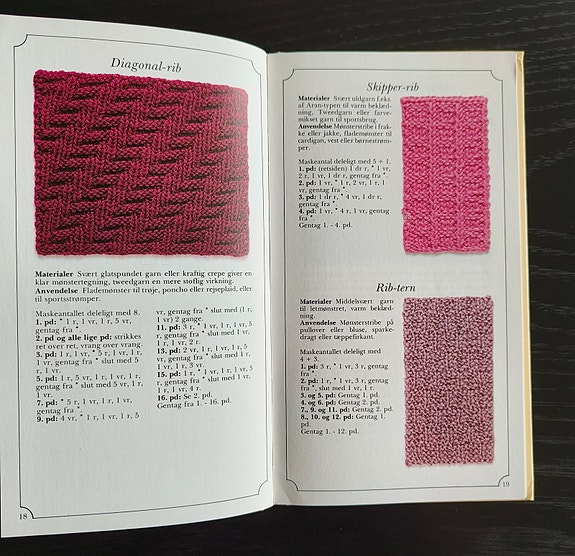 Diagonal-rib
Materialer Svært glatspundet garn eller kraftig crepe giver en
klar mønstertegning, tweedgarn en mere stoflig virkning.
Anvendelse Flademønster til trøje, poncho eller rejseplaid, eller
til sportsstrømper.
Maskeantallet deleligt med 8.
1. pd: * 1 r, 1 vr, 1 r, 5 vr,
gentag fra *.
2. pd og alle lige pd: strikkes
ret over ret, vrang over vrang.
3. pd: 1 r, 1 vr, * 5 r, 1 vr, 1 r,
1 vr, gentag fra * slut med 5
r, 1 vr.
5. pd: 1 r, 5 vr, 1 r, 1 vr, 1 r,
gentag fra * slut med 5 vr, 1 r,
1 vr.
7. pd: * 5 r, 1 vr, 1 r, 1 vr,
gentag fra *.
9. pd: 4 vr, * 1 r, 1 vr, 1 r, 5
vr, gentag fra * slut med (1 r,
1 vr) 2 gange.
11. pd: 3 r, * 1 vr, 1 r, 1 vr, 5
r, gentag fra * slut med 1 vr,
1 r, 1 vr, 2 r.
13. pd: 2 vr, 1 r, 1 vr, 1 r, 5
vr, gentag fra * slut med 1 r,
1 vr, 1 r, 3 vr.
15. pd: 1 r, * 1 vr, 1 r, 1 vr, 5
r, gentag fra * slut med 1 vr,
1 r, 1 vr, 4 r.
16. pd: Se 2. pd.
Gentag fra 1. - 16. pd.
18
Skipper-rib
Materialer Svært uldgarn f.eks.
af Aran-typen til varm beklæd-
ning. Tweedgarn eller farve-
mikset garn til sportsbrug.
Anvendelse Mønsterstribe i frak-
ke eller jakke, flademønster til
cardigan, vest eller børnestrøm-
per.
Maskeantal deleligt med 5 + 1.
1. pd: (retsiden) 1 dr r, * 1 vr,
2 r, 1 vr, 1 dr r, gentag fra *.
2. pd: 1 vr, * 1 r, 2 vr, 1 r, 1
vr, gentag fra *.
3. pd: 1 dr r, * 4 vr, 1 dr r,
gentag fra *.
4. pd: 1 vr, * 4 r, 1 vr, gentag
fra *.
Gentag 1. - 4. pd.
Rib-tern
Materialer Middelsvært garn
til letmønstret, varm beklæd-
ning.
Anvendelse Mønsterstribe på
pullover eller bluse, sparke-
dragt eller tæppefirkant.
Maskeantallet deleligt med
4 + 3.
1. pd: 3 r, * 1 vr, 3 r, gentag
fra *.
2. pd: 1 r, * 1 vr, 3 r, gentag
fra *, slut med 1 vr, 1 r.
3. og 5. pd: Gentag 1. pd.
4. og 6. pd: Gentag 2. pd.
7., 9. og 11. pd: Gentag 2. pd.
8., 10. og 12. pd: Gentag 1.
pd.
Gentag 1. - 12. pd.
19